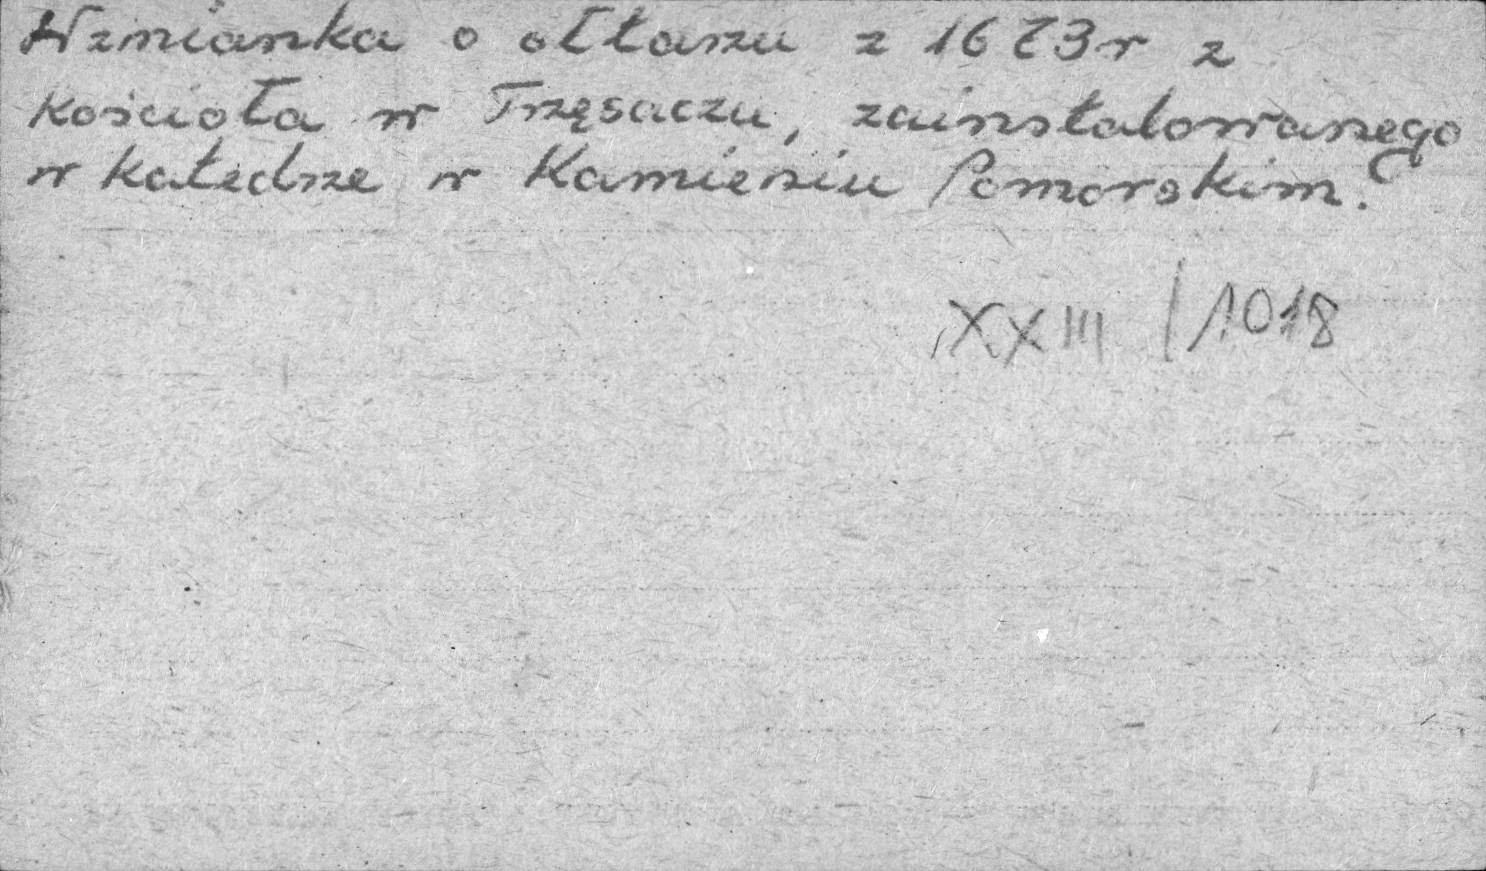 Wzmianka o ołtarzu z 1673 r z
kościoła w Trzęsaczu, zainstalowanego
w katedrze w Kamieniu Pomorskim.
XXIII / 1018